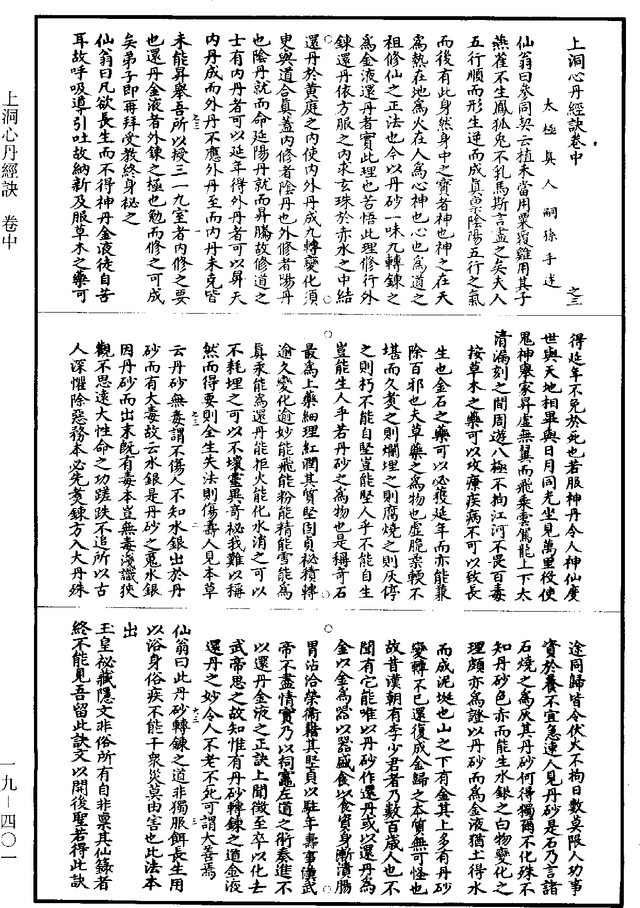 上洞心丹經訣卷中
太極真人嗣孫手述
仙翁曰參同契云植禾當用粟覆雞用其子
燕雀不生鳳狐兔不乳馬斯言盡之矣夫人
五行順而形生逆而成真稟陰陽五行之氣
而後有此身然身中之寶者神也神之在天
為熱在地為火在人為心神也心也為道之
祖修仙之正法也今以丹砂一味九轉鍊之
為金液還丹者實此理也苦悟此理修行外
鍊還丹依方服之內求玄珠於赤水之中結
還丹於黃庭之內使內外丹成九轉變化須
叟與道合真蓋內修者陰丹也外修者陽丹
也陰丹就而命延陽丹就而昇騰故修道之
士有內丹者可以延年得外丹者可以昇天
內丹成而外丹不應外丹至而內丹未克皆
未能昇舉吾所以授三一九室者內修之要
也還丹金液者外鍊之極也勉而修之可成
矣弟子即再拜受教終身祕之
仙翁曰凡欲長生而不得神丹金液徒自苦
耳故呼吸導引吐故納新及服草木之藥可
得延年不免於死也若服神丹令人神仙度
世與天地相畢與日月同光坐見萬里役使
鬼神舉家昇虛無翼而飛乘雲駕龍上下太
清漏刻之間周遊八極不拘江河不畏百毒
按草木之藥可以攻療疾病不可以致長
生也金石之藥可以必獲延年而亦能兼
除百邪也夫草藥之為物也虛脆柔輭不
堪而久煑之則爛埋之則腐燒之則灰停
之則朽不能自堅豈能堅人乎不能自生
豈能生人乎若丹砂之為物也是稱奇石
最為上藥細理紅潤其質堅固貞祕積轉
逾久變化逾妙能飛能粉能精能雪能為
真汞能為還丹能拒火能化水消之可以
不耗埋之可以不壞靈異奇祕我難以稱
然而得要則全生失法則傷壽人見本草
云丹砂無毒謂不傷人不知水銀出於丹
砂而有大毒故云水銀是丹砂之䰟水銀
因丹砂而出末既有毒本豈無毒淺識狹
觀不思遠大性命之功蹉跌不追所以古
人深懼除惡務本必先煑鍊方入大丹殊
途同歸皆令伏火不拘日數莫限人功事
資於養不宜急速人見丹砂是石乃言諸
石燒之為灰其丹砂何得獨爾不化殊不
知丹砂色赤而能生水銀之白物變化之
理頗亦為證以丹砂而為金液猶土得水
而成泥埏也山之下有金其上多有丹砂
變轉不已還復成金歸之本質無可怪也
故昔漢朝有李少君者乃數百歲人也不
聞有它能唯以丹砂作還丹或以還丹為
金以金為器以器盛食以食資身漸漬腸
胃沾洽榮衛藉其堅貞以駐年壽事儀武
帝不盡情實乃以祠竈左道之術奏進不
以還丹金液之正訣上聞徵至卒以化去
武帝思之故知惟有丹砂轉鍊之道金液
還丹之妙令人不老不死可謂大善焉
仙翁曰此丹砂轉鍊之道非獨服餌長生用
以浴身俗疾不能干衆災莫由害也此法本
出
玉皇祕藏隱文非俗所有自非稟其仙錄者
終不能見吾留此訣文以開後聖若得此訣
上洞心丹經訣 卷中
一九－四〇一